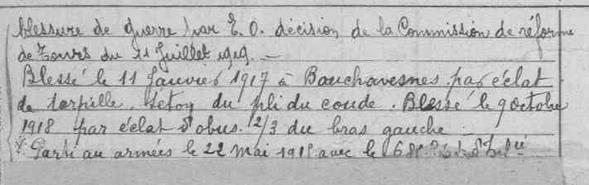 blessure de guerre par E.O. décision de la Commission de réforme
de Tours du 11 Juillet 1919. —
Blessé le 11 Janvier 1917 à Bouchavesnes par éclat
de torpille. du pli du coude. Blessé le 9 octobre
1918 par éclat d'obus. 2/3 du bras gauche —
Parti au armées le 22 Mai 1915 avec le 68e